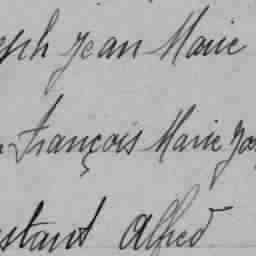 eph Jean Marie
François Marie Jos
stant Alfred